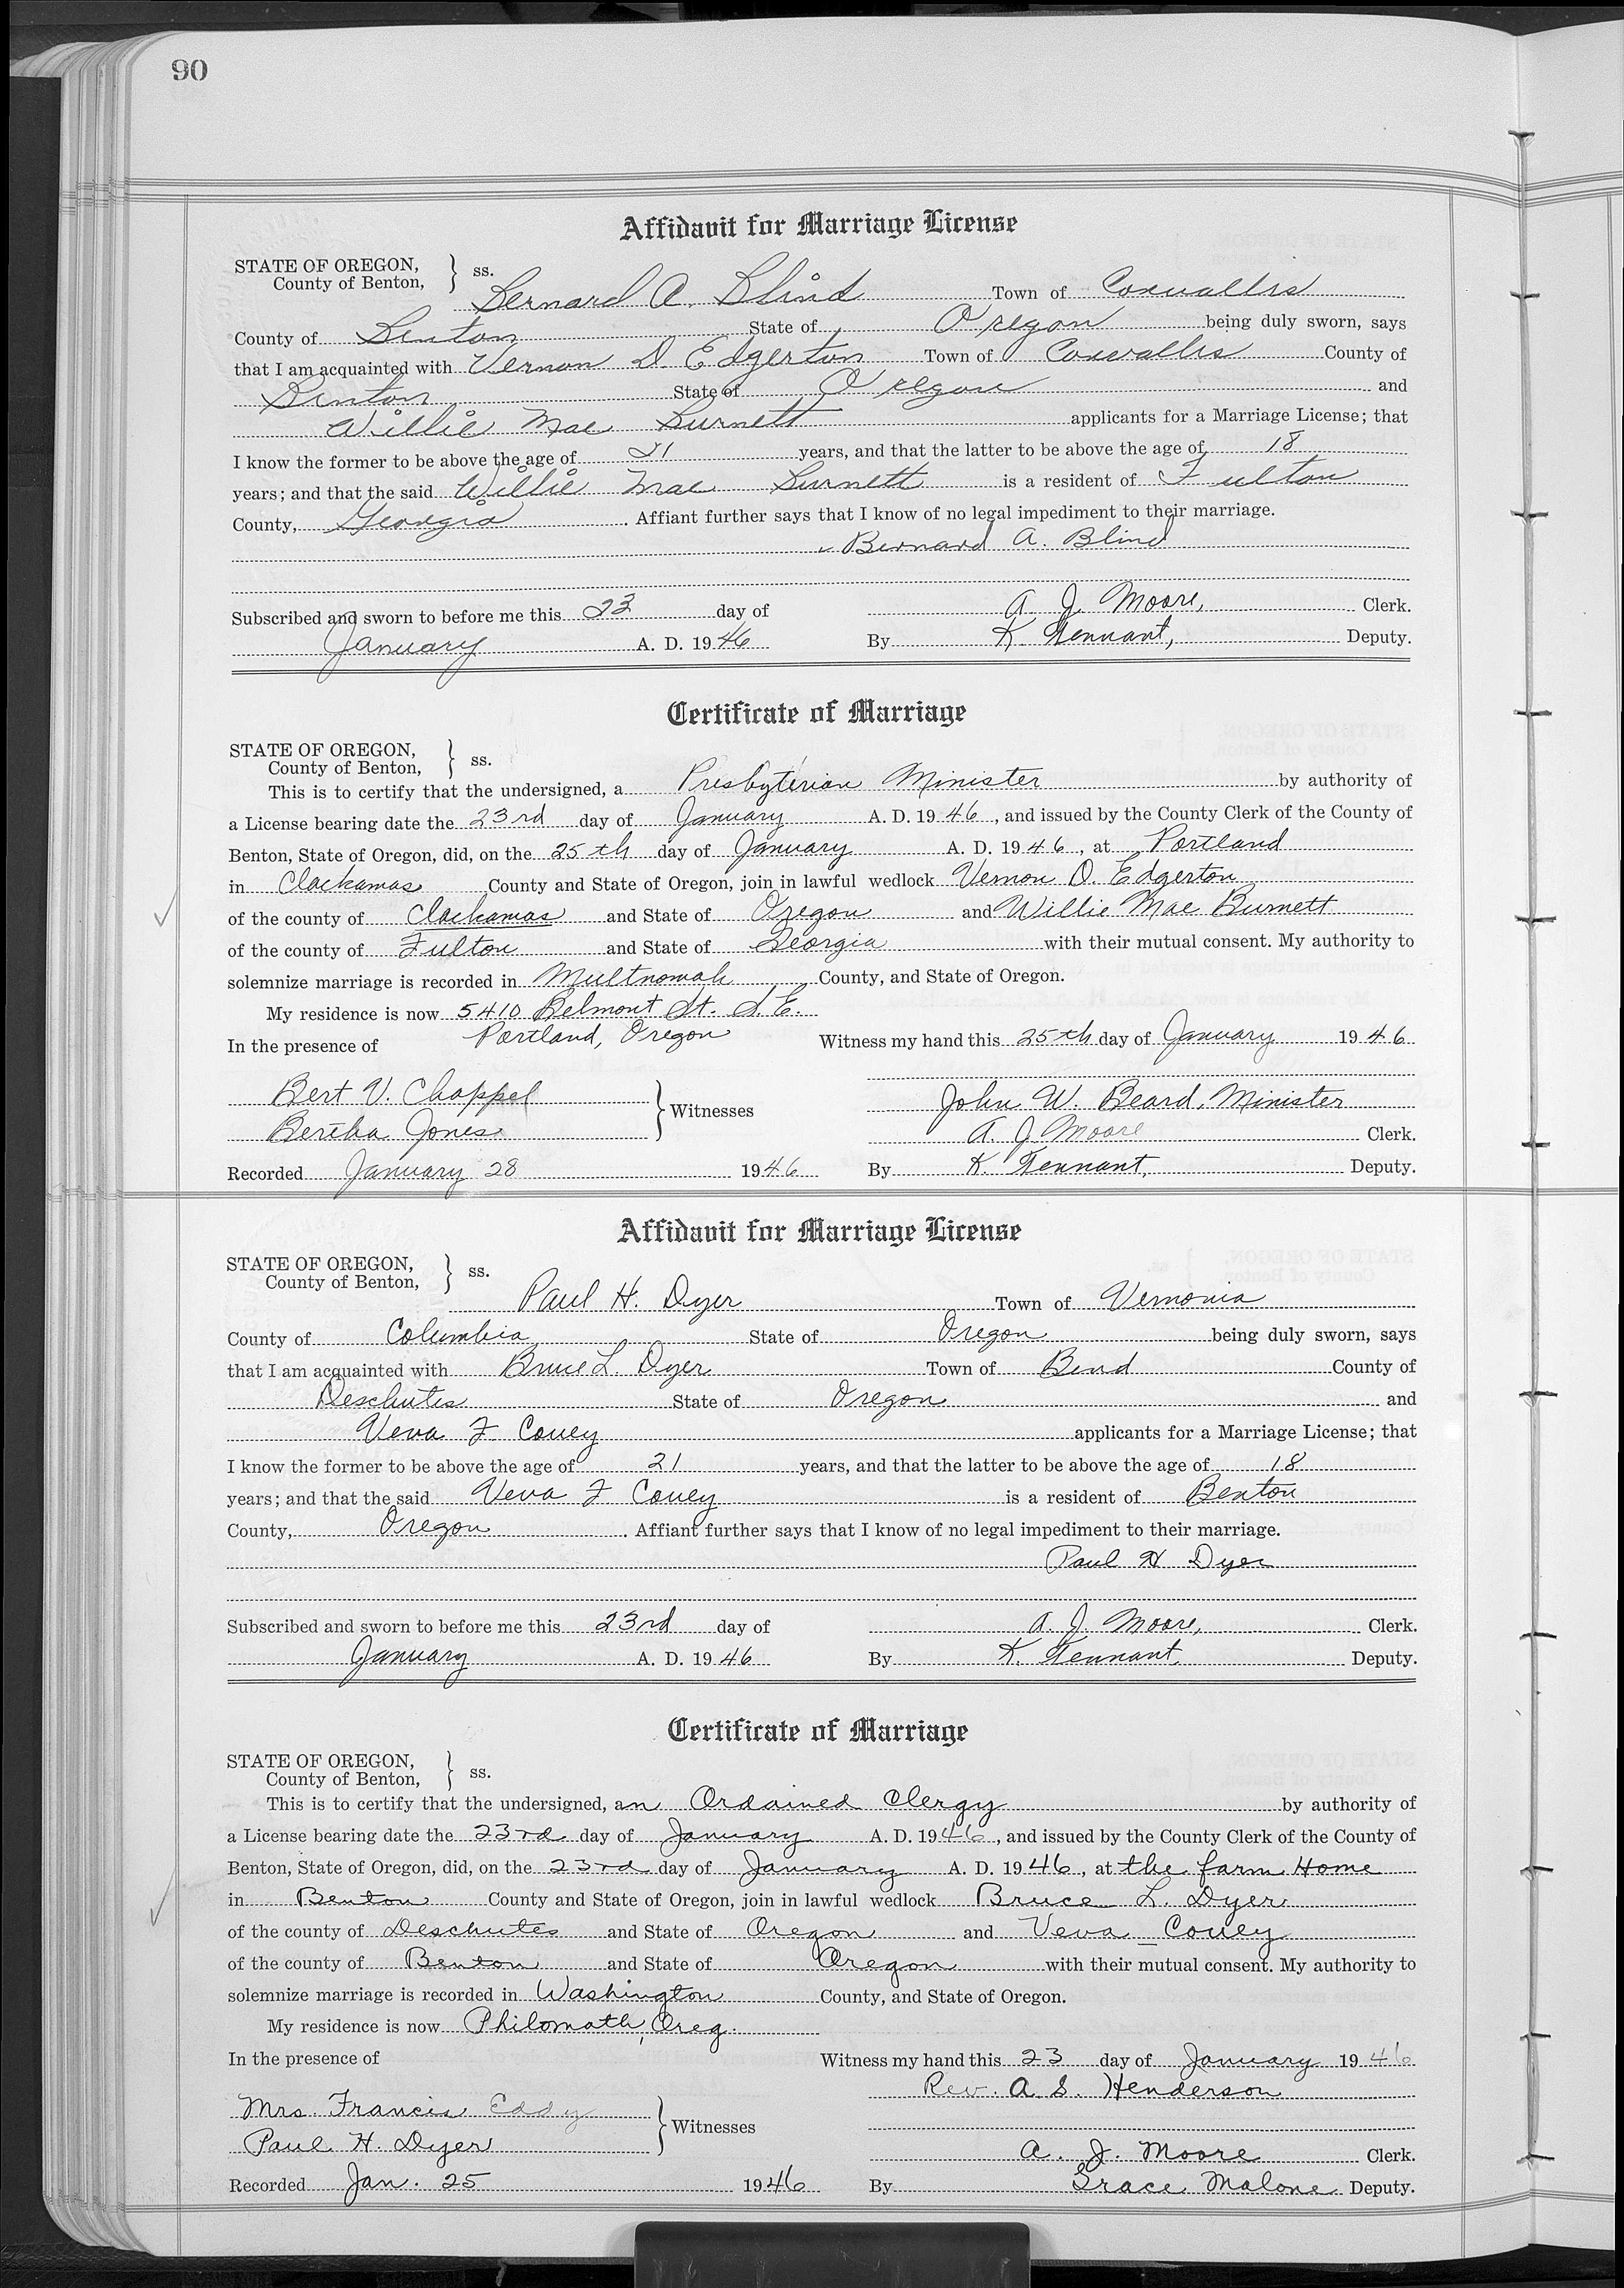 90
Affidavit for Marriage License
STATE OF OREGON,
County of Benton, } ss.
Bernard A. Blind Town of Corvallis
County of Benton State of Oregon being duly sworn, says
that I am acquainted with Vernon D. Edgerton Town of Corvallis County of
Benton State of Oregon and
Willie Mae Burnett applicants for a Marriage License; that
I know the former to be above the age of 21 years, and that the latter to be above the age of 18
years; and that the said Willie Mae Burnett is a resident of Fulton
County, Georgia. Affiant further says that I know of no legal impediment to their marriage.
Bernard A. Blind
Subscribed and sworn to before me this 23 day of A. J. Moore, Clerk.
January A. D. 1946 By K. Tennant, Deputy.
Certificate of Marriage
STATE OF OREGON,
County of Benton, } ss.
This is to certify that the undersigned, a Presbyterian Minister by authority of
a License bearing date the 23rd day of January A. D. 1946, and issued by the County Clerk of the County of
Benton, State of Oregon, did, on the 25th day of January A. D. 1946, at Portland
in Clackamas County and State of Oregon, join in lawful wedlock Vernon O. Edgerton
of the county of Clackamas and State of Oregon and Willie Mae Burnett
of the county of Fulton and State of Georgia with their mutual consent. My authority to
solemnize marriage is recorded in Multnomah County, and State of Oregon.
My residence is now 5410 Belmont St. S.E.
Portland, Oregon
In the presence of Witness my hand this 25th day of January 1946
Bert V. Chappel
Bertha Jones } Witnesses
John W. Beard, Minister
A. J. Moore Clerk.
Recorded January 28 1946 By K. Tennant, Deputy.
Affidavit for Marriage License
STATE OF OREGON,
County of Benton, } ss.
Paul H. Dyer Town of Vernonia
County of Columbia State of Oregon being duly sworn, says
that I am acquainted with Bruce L. Dyer Town of Bend County of
Deschutes State of Oregon and
Veva F. Covey applicants for a Marriage License; that
I know the former to be above the age of 21 years, and that the latter to be above the age of 18
years; and that the said Veva F Covey is a resident of Benton
County, Oregon. Affiant further says that I know of no legal impediment to their marriage.
Paul H Dyer
Subscribed and sworn to before me this 23rd day of A. J. Moore, Clerk.
January A. D. 1946 By K. Tennant, Deputy.
Certificate of Marriage
STATE OF OREGON,
County of Benton, } ss.
This is to certify that the undersigned, an Ordained Clergy by authority of
a License bearing date the 23rd day of January A. D. 1946, and issued by the County Clerk of the County of
Benton, State of Oregon, did, on the 23rd day of January A. D. 1946, at the farm Home
in Benton County and State of Oregon, join in lawful wedlock Bruce L. Dyer
of the county of Deschutes and State of Oregon and Veva _ Covey
of the county of Benton and State of Oregon with their mutual consent. My authority to
solemnize marriage is recorded in Washington County, and State of Oregon.
My residence is now Philomath, Oreg.
In the presence of Witness my hand this 23 day of January 1946
Rev. A. S. Henderson
Mrs. Francis Eddy
Paul H. Dyer } Witnesses
A. J. Moore Clerk.
Recorded Jan. 25 1946 By Grace Malone Deputy.